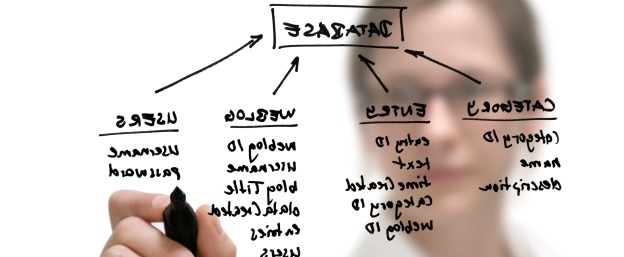 DATABASE
USERS
username
password
WEBLOG
weblog ID
username
blog Title
dataCreated
entries
users
ENTRY
entry ID
text
timeCreated
Category ID
weblog ID
CATEGORY
Category ID
name
description